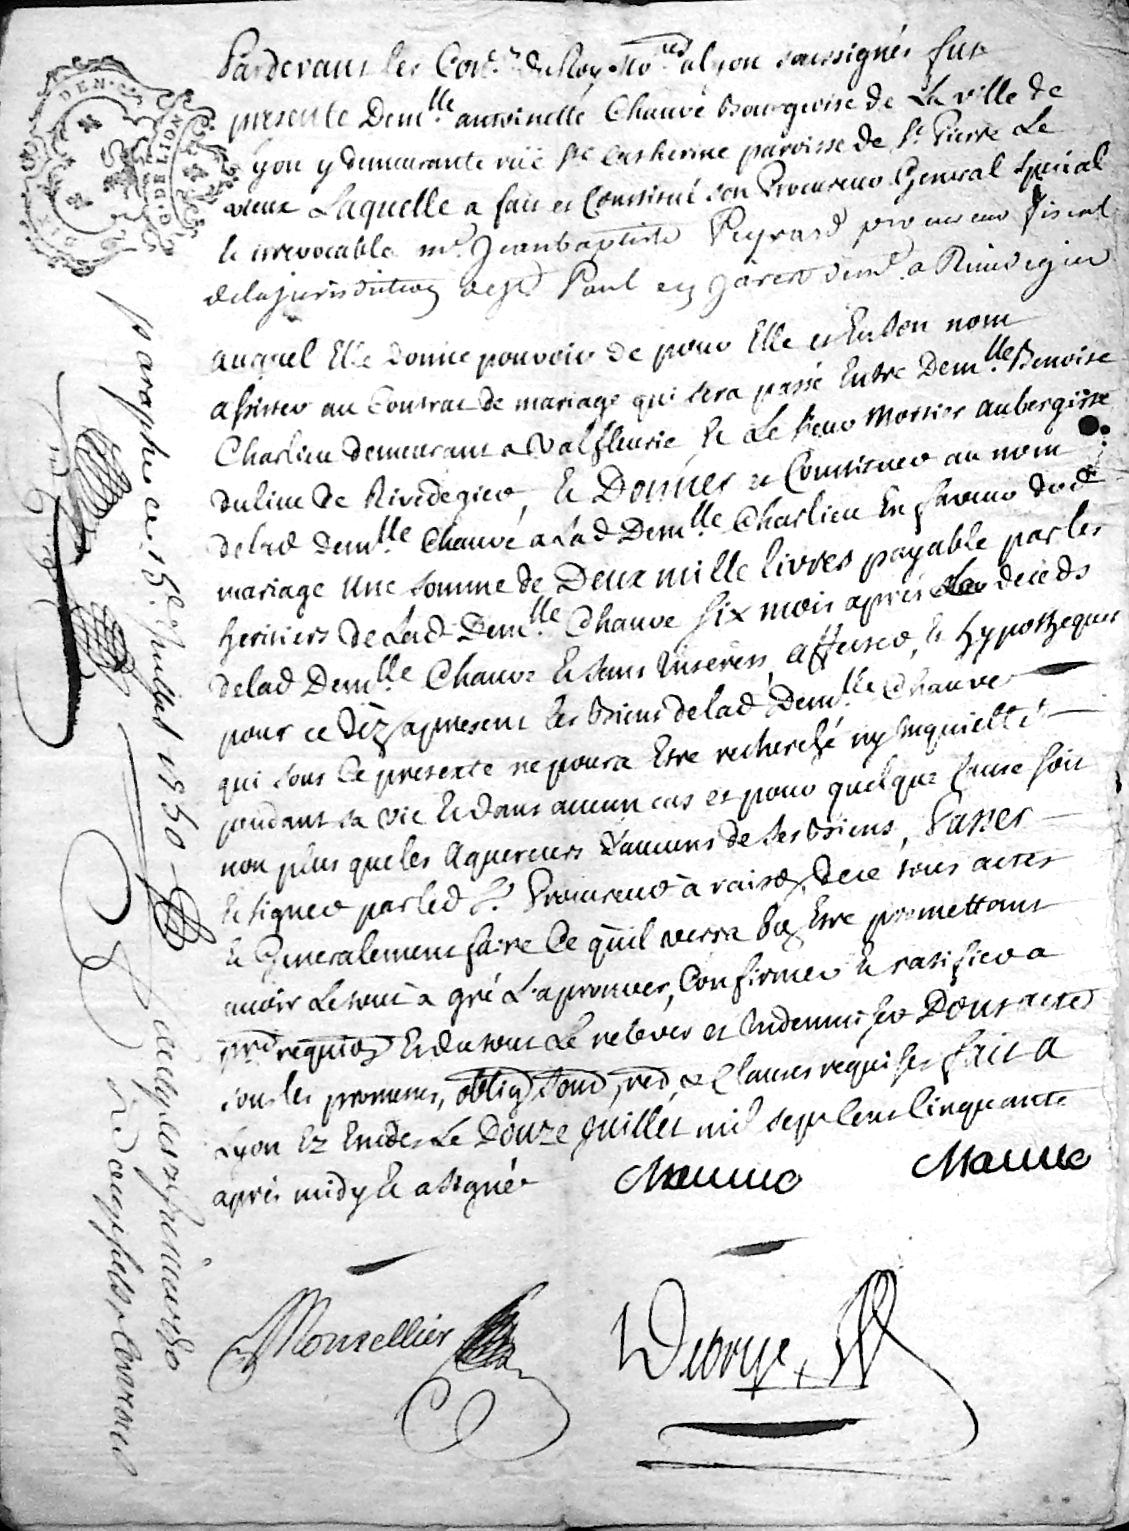 Pardevant les Con.rs du Roy No.res a lyon soussignés fut
presente Dem.lle antoinette Chauve Bourgeoise de La ville de
Lyon y demeurante rüe Ste Catherine paroisse de St Pierre Le
vieux Laquelle a fait et Constitué son Procureur General special
& irrevocable me Jeanbaptiste Peyrard procureur fiscal
delajurisdiction de St Paul en Jarest demt a Rivedegier
auquel Elle donne pouvoir de pour Elle et En son nom
assister au Contrat de mariage qui sera passé Entre Dem.lle Benoise
Charlieu demeurant a Valfleurie & Le sieur Mortier aubergiste
dulieu de Rivedegier, & Donner et Constituer au nom
delad Dem.lle Chauve a Lad Dem.lle Charlieu En faveur dud
mariage Une somme de Deux mille livres payable par les
heritiers de Lad Dem.lle Chauve six mois après le decéds
delad Dem.lle Chauve & sans Interets, affecter, & hypothequer
pour ce Déz apresent les Biens delad Dem.lle Chauve
qui sous Ce pretexte ne poura Etre recherché ny Inquiettée
pendant sa vie & dans aucun cas et pour quelque Cause soit
non plus que les Aquereurs D'aucuns de ses Biens, Passer
& signer par led Sr Procureur à raison de ce tous actes
& Generalement faire Ce qu'il verra bon Etre promettant
avoir Letout a gré L'aprouver, Confirmer & ratifier a
premre requion & du tout Le relever et Indemniser Dont acte
sous les promeses, oblig Soud, red, & Clauses requises fait a
Lyon Ez Etudes Le Douze Juillet mil sept Cent Cinquante
après midy & a signée Chauve Chauve
Montellier
Delorge
DEN.
DIX
G.DE LION
paraphé ce 15e Juillet 1750